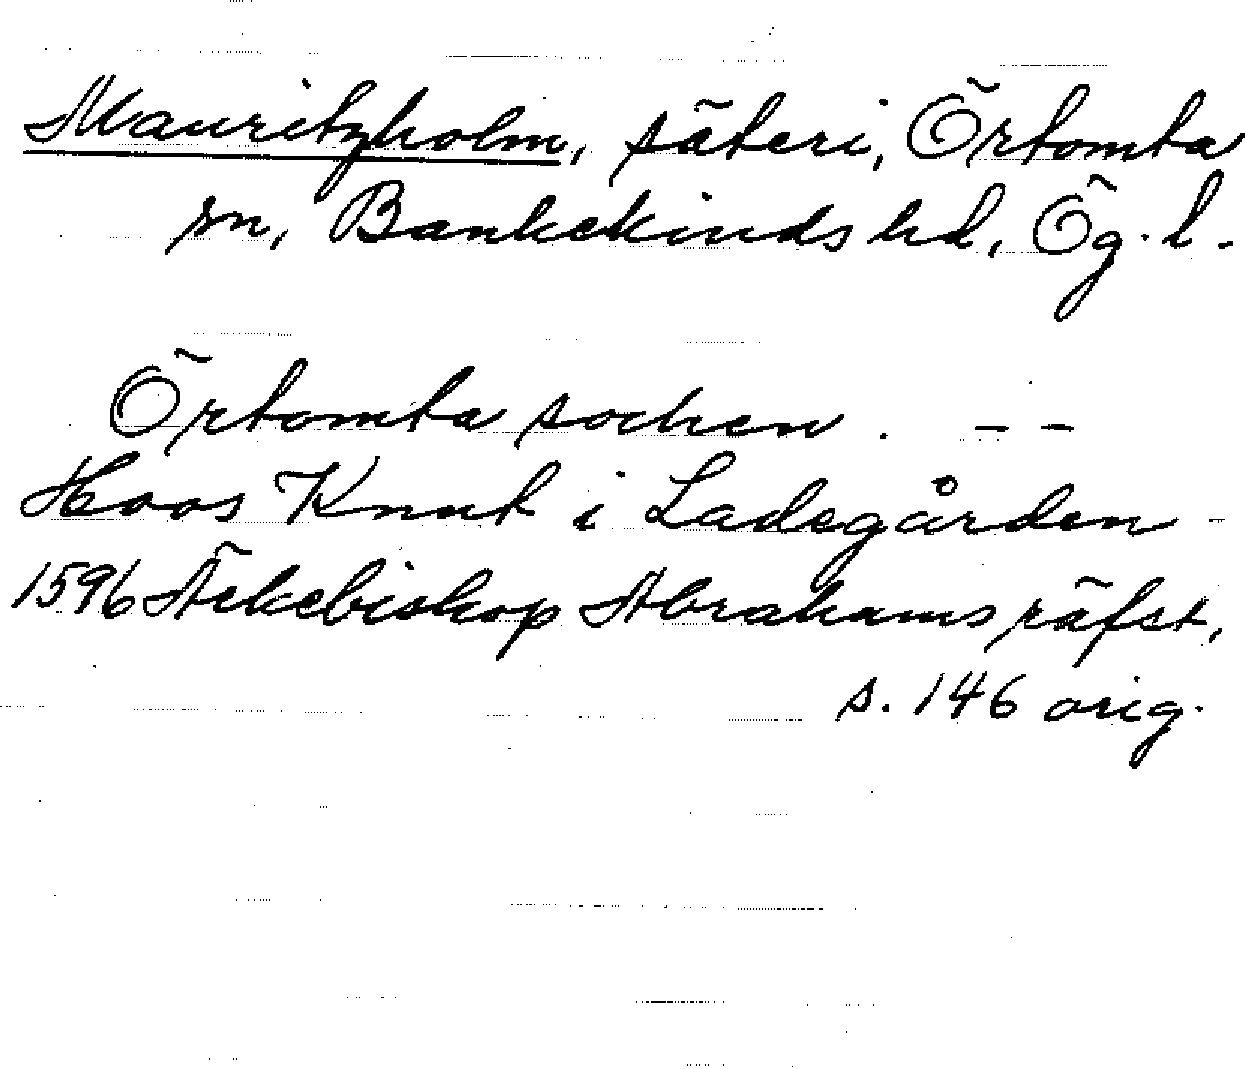 Mauritzholm, säteri, Örtomta
sn, Bankekinds hd, Ög. l.
Örtomta sochen. – –
Hoos Knut i Ladegården –
1596 Ärkebiskop Abrahams räfst,
s. 146 orig.